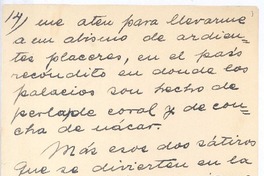 14) me aten para llevarme
a un abismo de ardien-
tes placeres, en el país
recóndito en donde los
palacios son hecho de
perla, de coral y de con-
cha de nácar.
Más esos dos sátiros
que se divierten en la